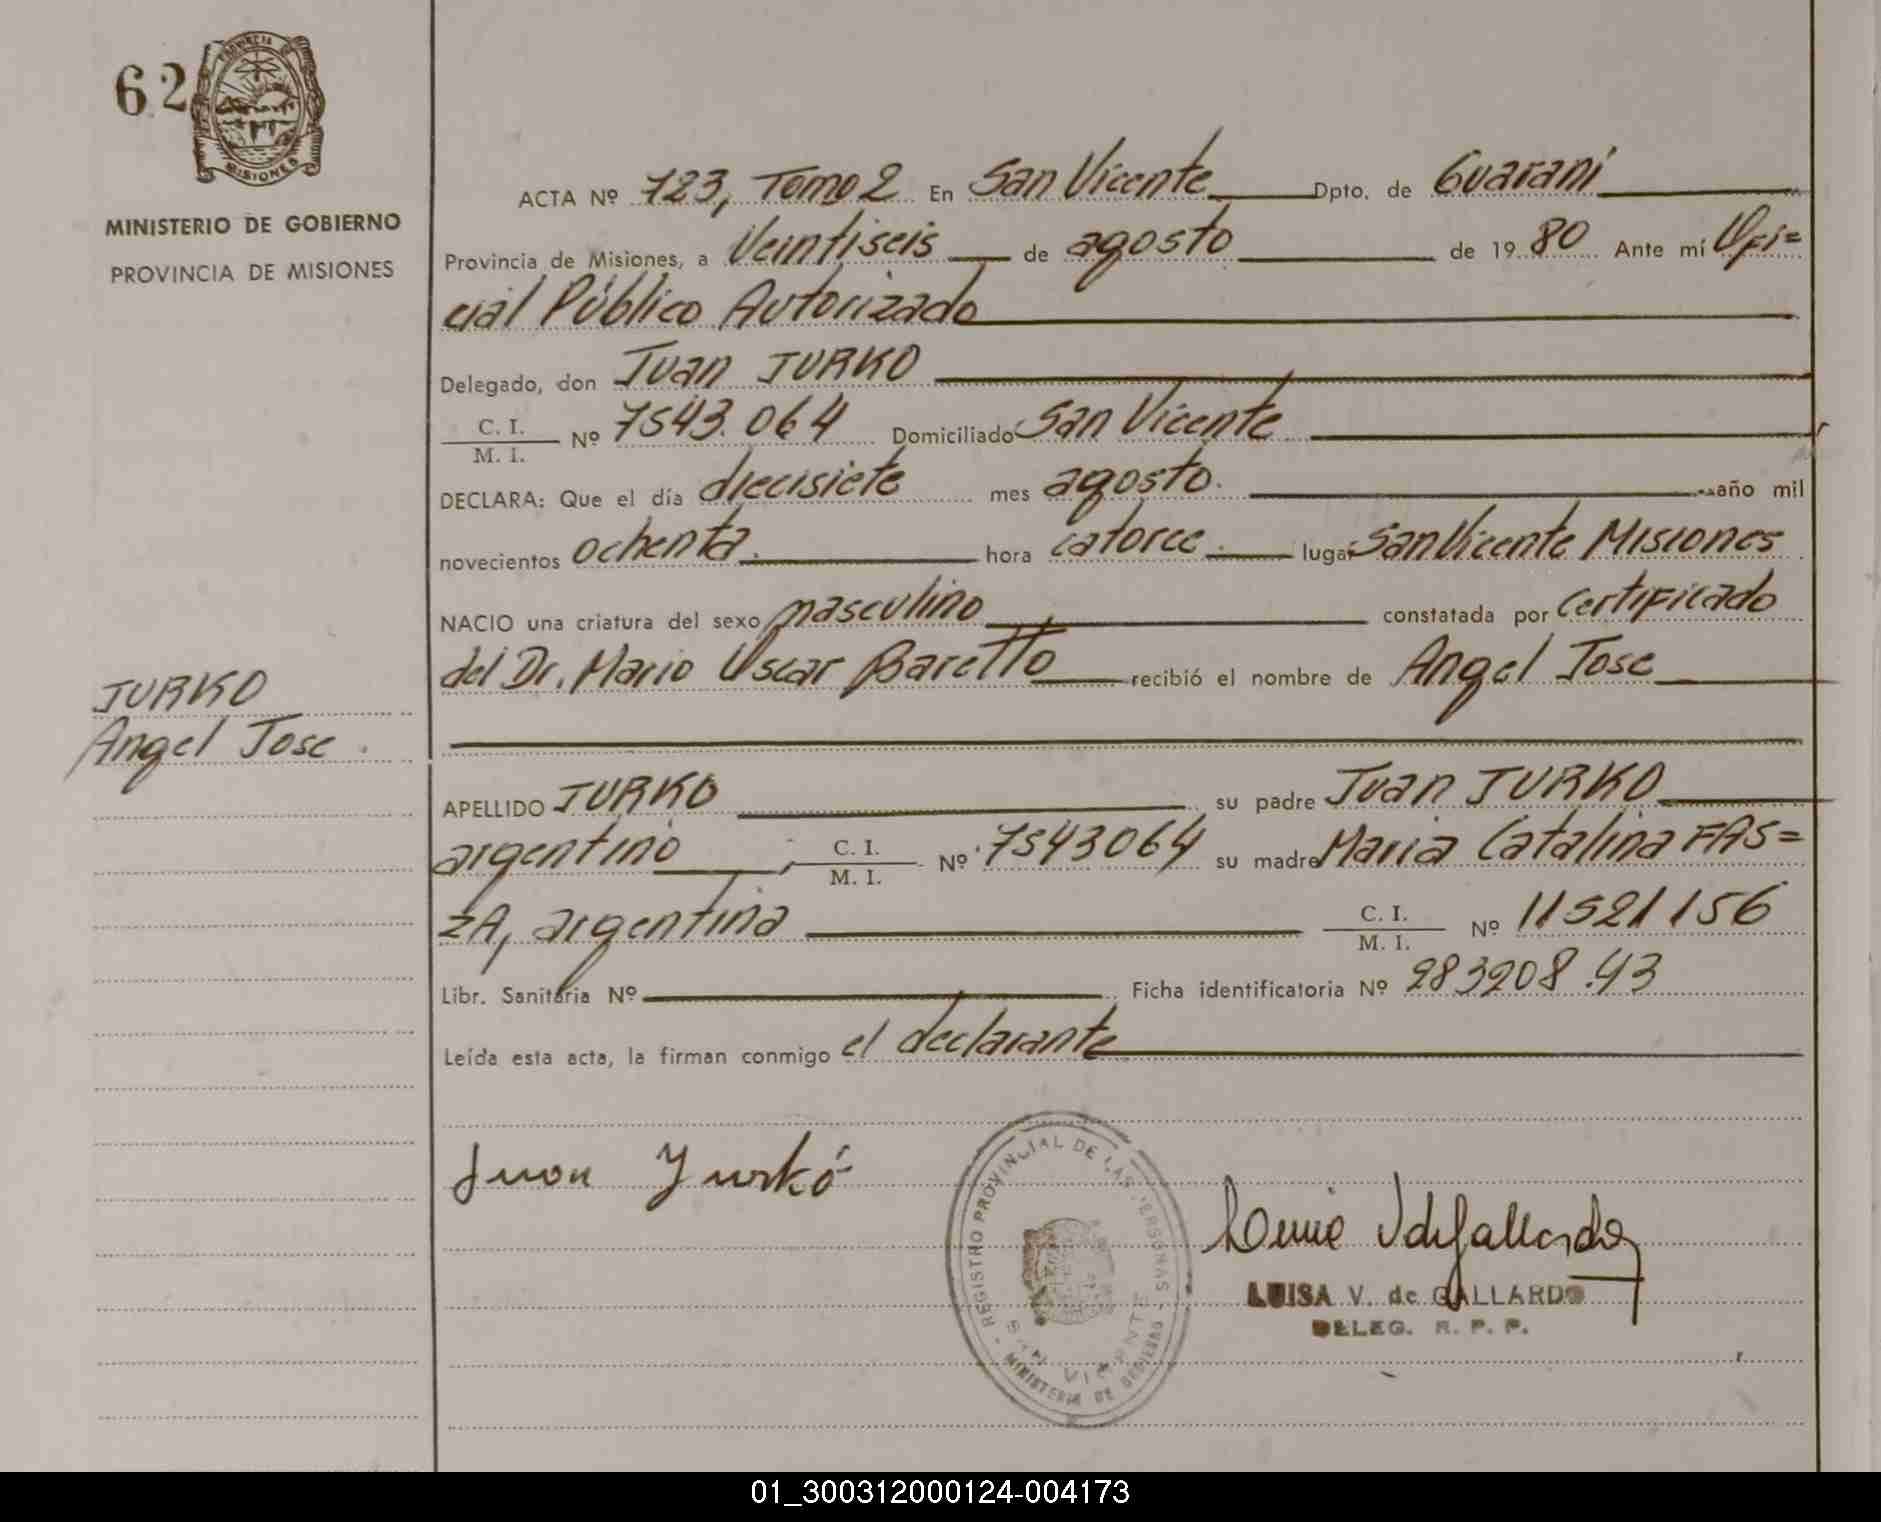 62
PROVINCIA
MISIONES
MINISTERIO DE GOBIERNO
PROVINCIA DE MISIONES
ACTA Nº 723, Tomo 2 En San Vicente Dpto. de Guaraní
Provincia de Misiones, a Veintiseis de agosto de 1980 Ante mí Ofi=
cial Público Autorizado
Delegado, don Juan JURKO
C. I.
M. I. Nº 7543.064 Domiciliado San Vicente
DECLARA: Que el día diecisiete mes agosto. año mil
novecientos ochenta. hora catorce. lugar San Vicente Misiones
NACIO una criatura del sexo masculino constatada por Certificado
del Dr. Mario Oscar Baretto recibió el nombre de Angel Jose
JURKO
Angel Jose.
APELLIDO JURKO su padre Juan JURKO
argentino C. I.
M. I. Nº 7543064 su madre Maria Catalina FAS=
ZA, argentina C. I.
M. I. Nº 11521156
Libr. Sanitaria Nº Ficha identificatoria Nº 283208.43
Leída esta acta, la firman conmigo el declarante
Juan Jurkó
REGISTRO PROVINCIAL DE LAS PERSONAS
SAN VICENTE
MINISTERIO DE GOBIERNO
LUISA V. de GALLARDO
DELEG. R. P. P.
01_300312000124-004173